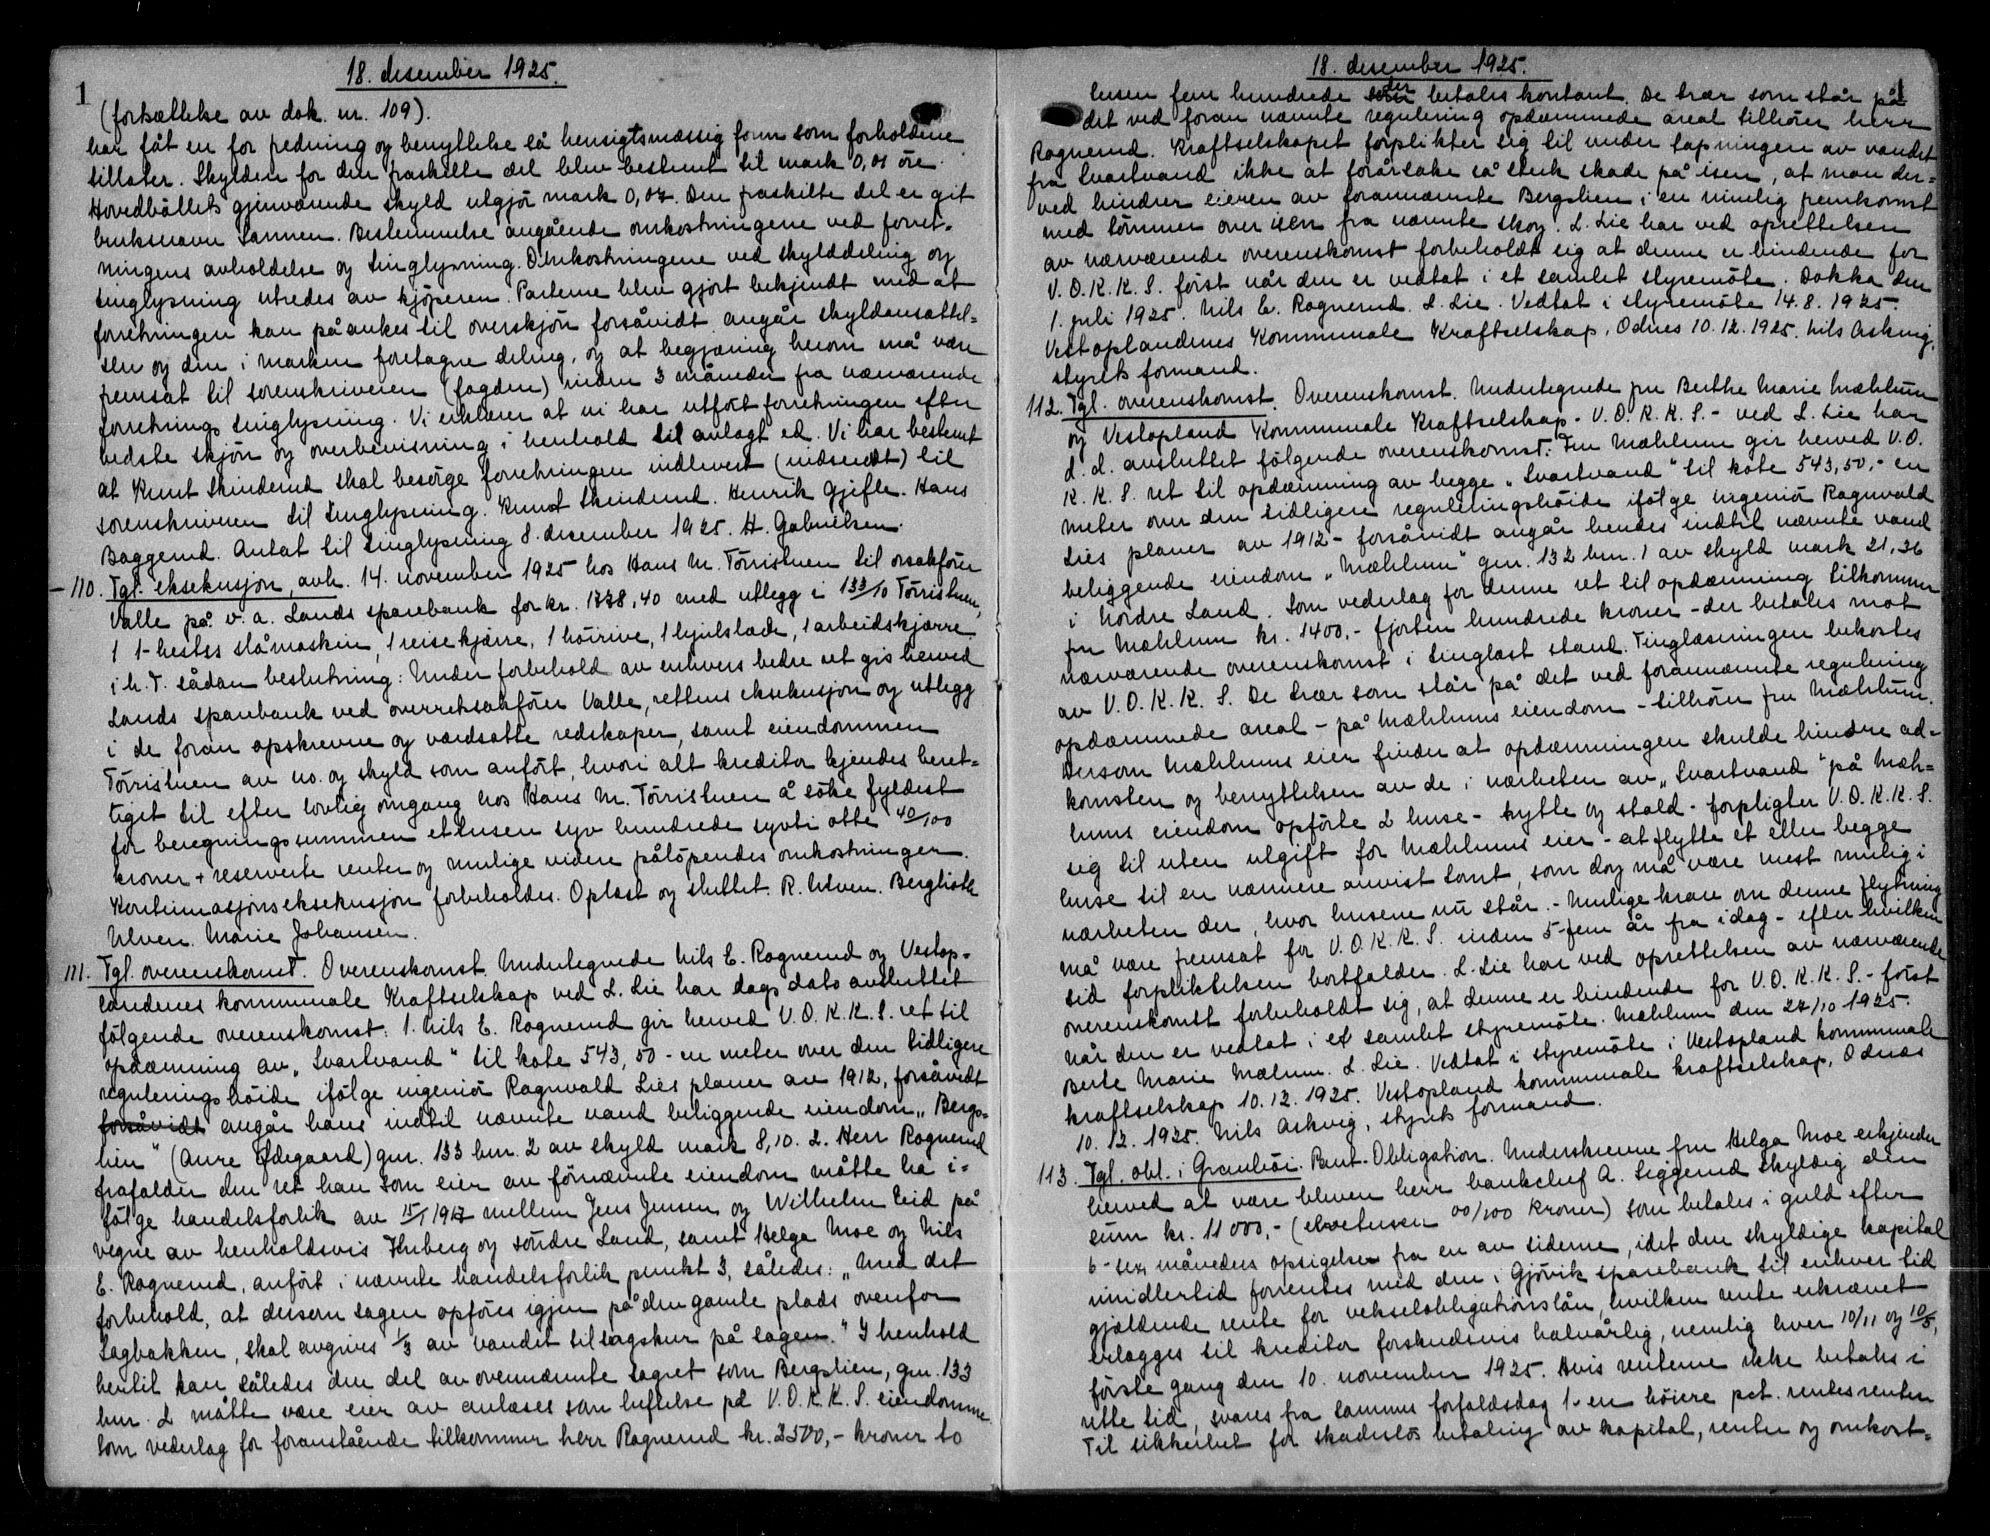 18. desember 1925.
1
(fortsættelse av dok. nr. 109).
har fåt en for fredning og benyttelse så hensigtsmæssig form som forholdene
tillater. Skylden for den fraskilte del blev bestemt til mark 0,01 öre.
Hovedböllets gjenværende skyld utgjör mark 0,07. Den fraskilte del er git
bruksnavn Sannen. Bestemmelse angående omkostningene ved forret-
ningens avholdelse og tinglysning. Omkostningene ved skylddeling og
tinglysning utredes av kjöperen. Parterne blev gjort bekjendt med at
forretningen kan påankes til overskjön forsåvidt angår skyldansættel-
sen og den i marken foretagne deling, og at begjæring herom må være
fremsat til sorenskriveren (fogden) inden 3 måneder fra nærværende
forretnings tinglysning. Vi erklærer at vi har utfört forretningen efter
bedste skjön og overbevisning i henhold til avlagt ed. Vi har bestemt
at Knut Skinderud skal besörge forretningen indlevert (indsendt) til
sorenskriveren til tinglysning. Knut Skinderud. Henrik Gjefle. Hans
Baggerud. Antat til tinglysning 8. desember 1925. H. Gabrielsen.
110. Tgl. eksekusjon, avh. 14. november 1925 hos Hans M. Törristuen til orsakförer
Valle på v.a. Lands sparebank for kr. 1778,40 med utlegg i 133/10 Törristuen,
1 1-hestes slåmaskin, 1 reisekjærre, 1 höirive, 1 hjulslæde, 1 arbeidskjærre
i h. T. sådan beslutning: Under forbehold av enhvers bedre ret gis herved
Lands sparebank ved overretssakförer Valle, rettens eksekusjon og utlegg
i de foran opskrevne og værdsatte redskaper, samt eiendommen
Törristuen av no. og skyld som anfört, hvori alt kreditor kjendes beret-
tiget til efter lovlig omgang hos Hans M. Törristuen å söke fyldest
for beregningssummen ettusen syv hundrede sytti otte 40/100
kroner + reserverte renter og mulige videre pålöpendes omkostninger.
Kontinuasjonseksekusjon forbeholdes. Oplest og sluttet. R. Ulven. Berglioth
Ulven. Marie Johansen.
111. Tgl. overenskomst. Overenskomst. Undertegnede Nils E. Rognerud og Vestop-
landenes kommunale Kraftselskap ved L. Lie har dags dato avsluttet
fölgende overenskomst: 1. Nils E. Rognerud gir herved V.O.K.K.S. ret til
opdæmning av „Svartvand" til kote 543,50 - en meter over den tidligere
reguleringshöide ifölge ingeniör Ragnvald Lies planer av 1912, forsåvidt
forsåvidt angår hans indtil nævnte vand beliggende eiendom „Bergs-
lien" (Aure Ödegaard) gnr. 133 bnr. 2 av skyld mark 8,10. 2. Herr Rognerud
frafalder den ret han som eier av förnævnte eiendom måtte ha i-
fölge handelsforlik av 15/1 1917 mellem Jens Jensen og Wilhelm Eid på
vegne av henholdsvis Fluberg og söndre Land, samt Helge Moe og Nils
E. Rognerud, anfört i nævnte handelsforlik punkt 3, således: „Med det
forbehold, at dersom sagen opföres igjen på den gamle plads ovenfor
Sagbakken, skal avgives 1/3 av vandet til sagskur på sagen." I henhold
hertil kan således den del av ovennævnte sagret som Bergslien, gnr. 133
bnr. 2 måtte være eier av anlæses som heftelse på V.O.K.K.S. eiendomme.
Som vederlag for foranstående tilkommer herr Rognerud kr. 2500,- kroner to
18. desember 1925.
1
tusen fem hundrede som der betales kontant. De trær som står på
det ved foran nævnte regulering opdæmmede areal tilhörer herr
Rognerud. Kraftselskapet forplikter sig til under tapningen av vandet
fra Svartvand ikke at forårsake så sterk skade på isen, at man der-
ved hindrer eieren av forannævnte Bergslien i en rimelig fremkomst
med tömmer over isen fra nævnte skog. L. Lie har ved oprettelsen
av nærværende overenskomst forbeholdt sig at denne er bindende for
V.O.K.K.S. först når den er vedtat i et samlet styremöte. Dokka den
1. juli 1925. Nils E. Rognerud. L. Lie. Vedtat i styremöte 14.8.1925.
Vestoplandenes Kommunale Kraftselskap, Odnes 10.12.1925. Nils Askvig,
styrets formand.
112. Tgl. overenskomst. Overenskomst. Undertegnede fru Berthe Marie Mæhlum
og Vestopland Kommunale Kraftselskap - V.O.K.K.S. - ved L. Lie har
d.d. avsluttet fölgende overenskomst: Fru Mæhlum gir herved V.O.
K.K.S. ret til opdæmning av begge „Svartvand" til kote 543,50,- en
meter over den tidligere reguleringshöide ifölge ingeniör Ragnvald
Lies planer av 1912 - forsåvidt angår hendes indtil nævnte vand
beliggende eiendom „Mæhlum" gnr. 132 bnr. 1 av skyld mark 21,36
i Nordre Land. Som vederlag for denne ret til opdæmning tilkommer
fru Mæhlum kr. 1400,- fjorten hundrede kroner - der betales mot
nærværende overenskomst i tinglæst stand. Tinglæsningen bekostes
av V.O.K.K.S. De trær som står på det ved forannævnte regulering
opdæmmede areal - på Mæhlums eiendom - tilhörer fru Mæhlum.
Dersom Mæhlums eier finder at opdæmningen skulde hindre ad-
komsten og benyttelsen av de i nærheten av „Svartvand" på Mæh-
lums eiendom opförte 2 huse - hytte og stald - forpligter V.O.K.K.S.
sig til uten utgift for Mæhlums eier - at flytte et eller begge
huse til en nærmere anvist tomt, som dog må være mest mulig i
nærheten der, hvor husene nu står. - Mulige krav om denne flytning
må være fremsat for V.O.K.K.S. inden 5-fem år fra idag - efter hvilken
tid forpliktelsen bortfalder. L. Lie har ved oprettelsen av nærværende
overenskomst forbeholdt sig, at denne er bindende for V.O.K.K.S. - först
når den er vedtat i et samlet styremöte. Mæhlum den 27/10 1925.
Berte Marie Mælum. L. Lie. Vedtat i styremöte i Vestopland kommunale
kraftselskap 10.12.1925. Vestopland kommunale kraftselskap, Odnes
10.12.1925. Nils Askvig, styrets formand.
113. Tgl. obl. i Granhöi. Pant-Obligation. Underskrevne fru Helga Moe erkjender
herved at være bleven herr bankchef A. Seggerud skyldig den
sum kr. 11 000,- (elvetusen 00/100 kroner) som betales i guld efter
6-sex måneders opsigelse fra en av siderne, idet den skyldige kapital
imidlertid forrentes med den i Gjövik sparebank til enhver tid
gjældende rente for vekselobligationslån, hvilken rente erkrævet
erlægges til kreditor forskudsvis halvårlig, nemlig hver 10/11 og 10/5,
förste gang den 10. november 1925. Hvis renterne ikke betales i
rette tid, svares fra sammes forfaldsdag 1-en höiere pct. rentesrenter.
Til sikkerhet for skadeslös betaling av kapital, renter og omkost-